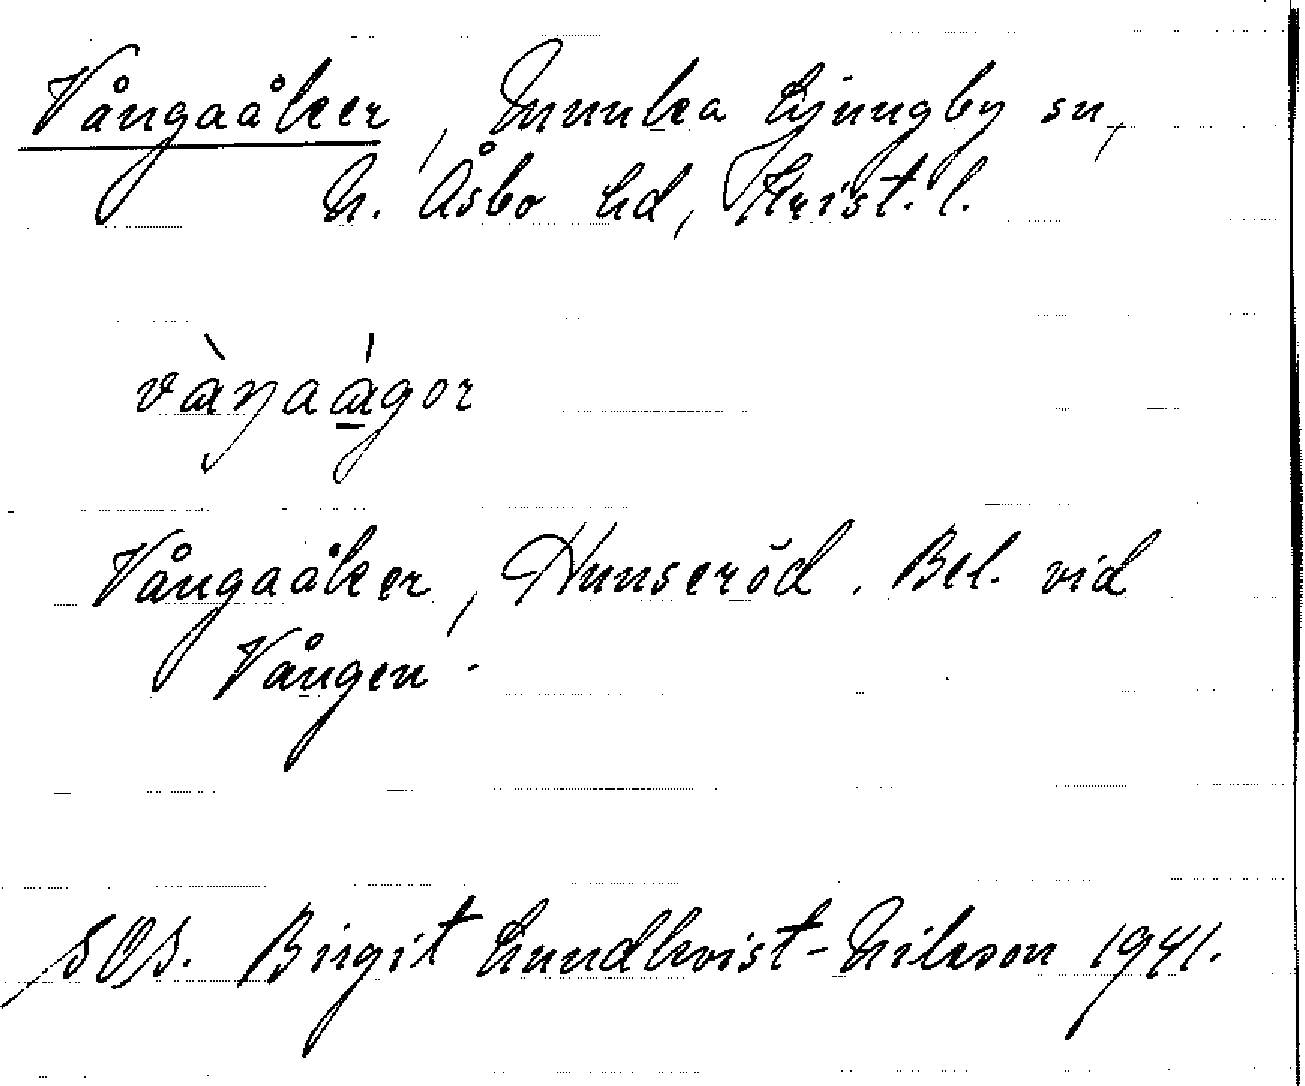 Vångaåker, Munka Ljungby sn,
N. Åsbo hd, Krist. l.
Vångaåker, Hunseröd. Bel. vid
Vången.
SOS. Birgit Lundkvist-Nilsson 1941.